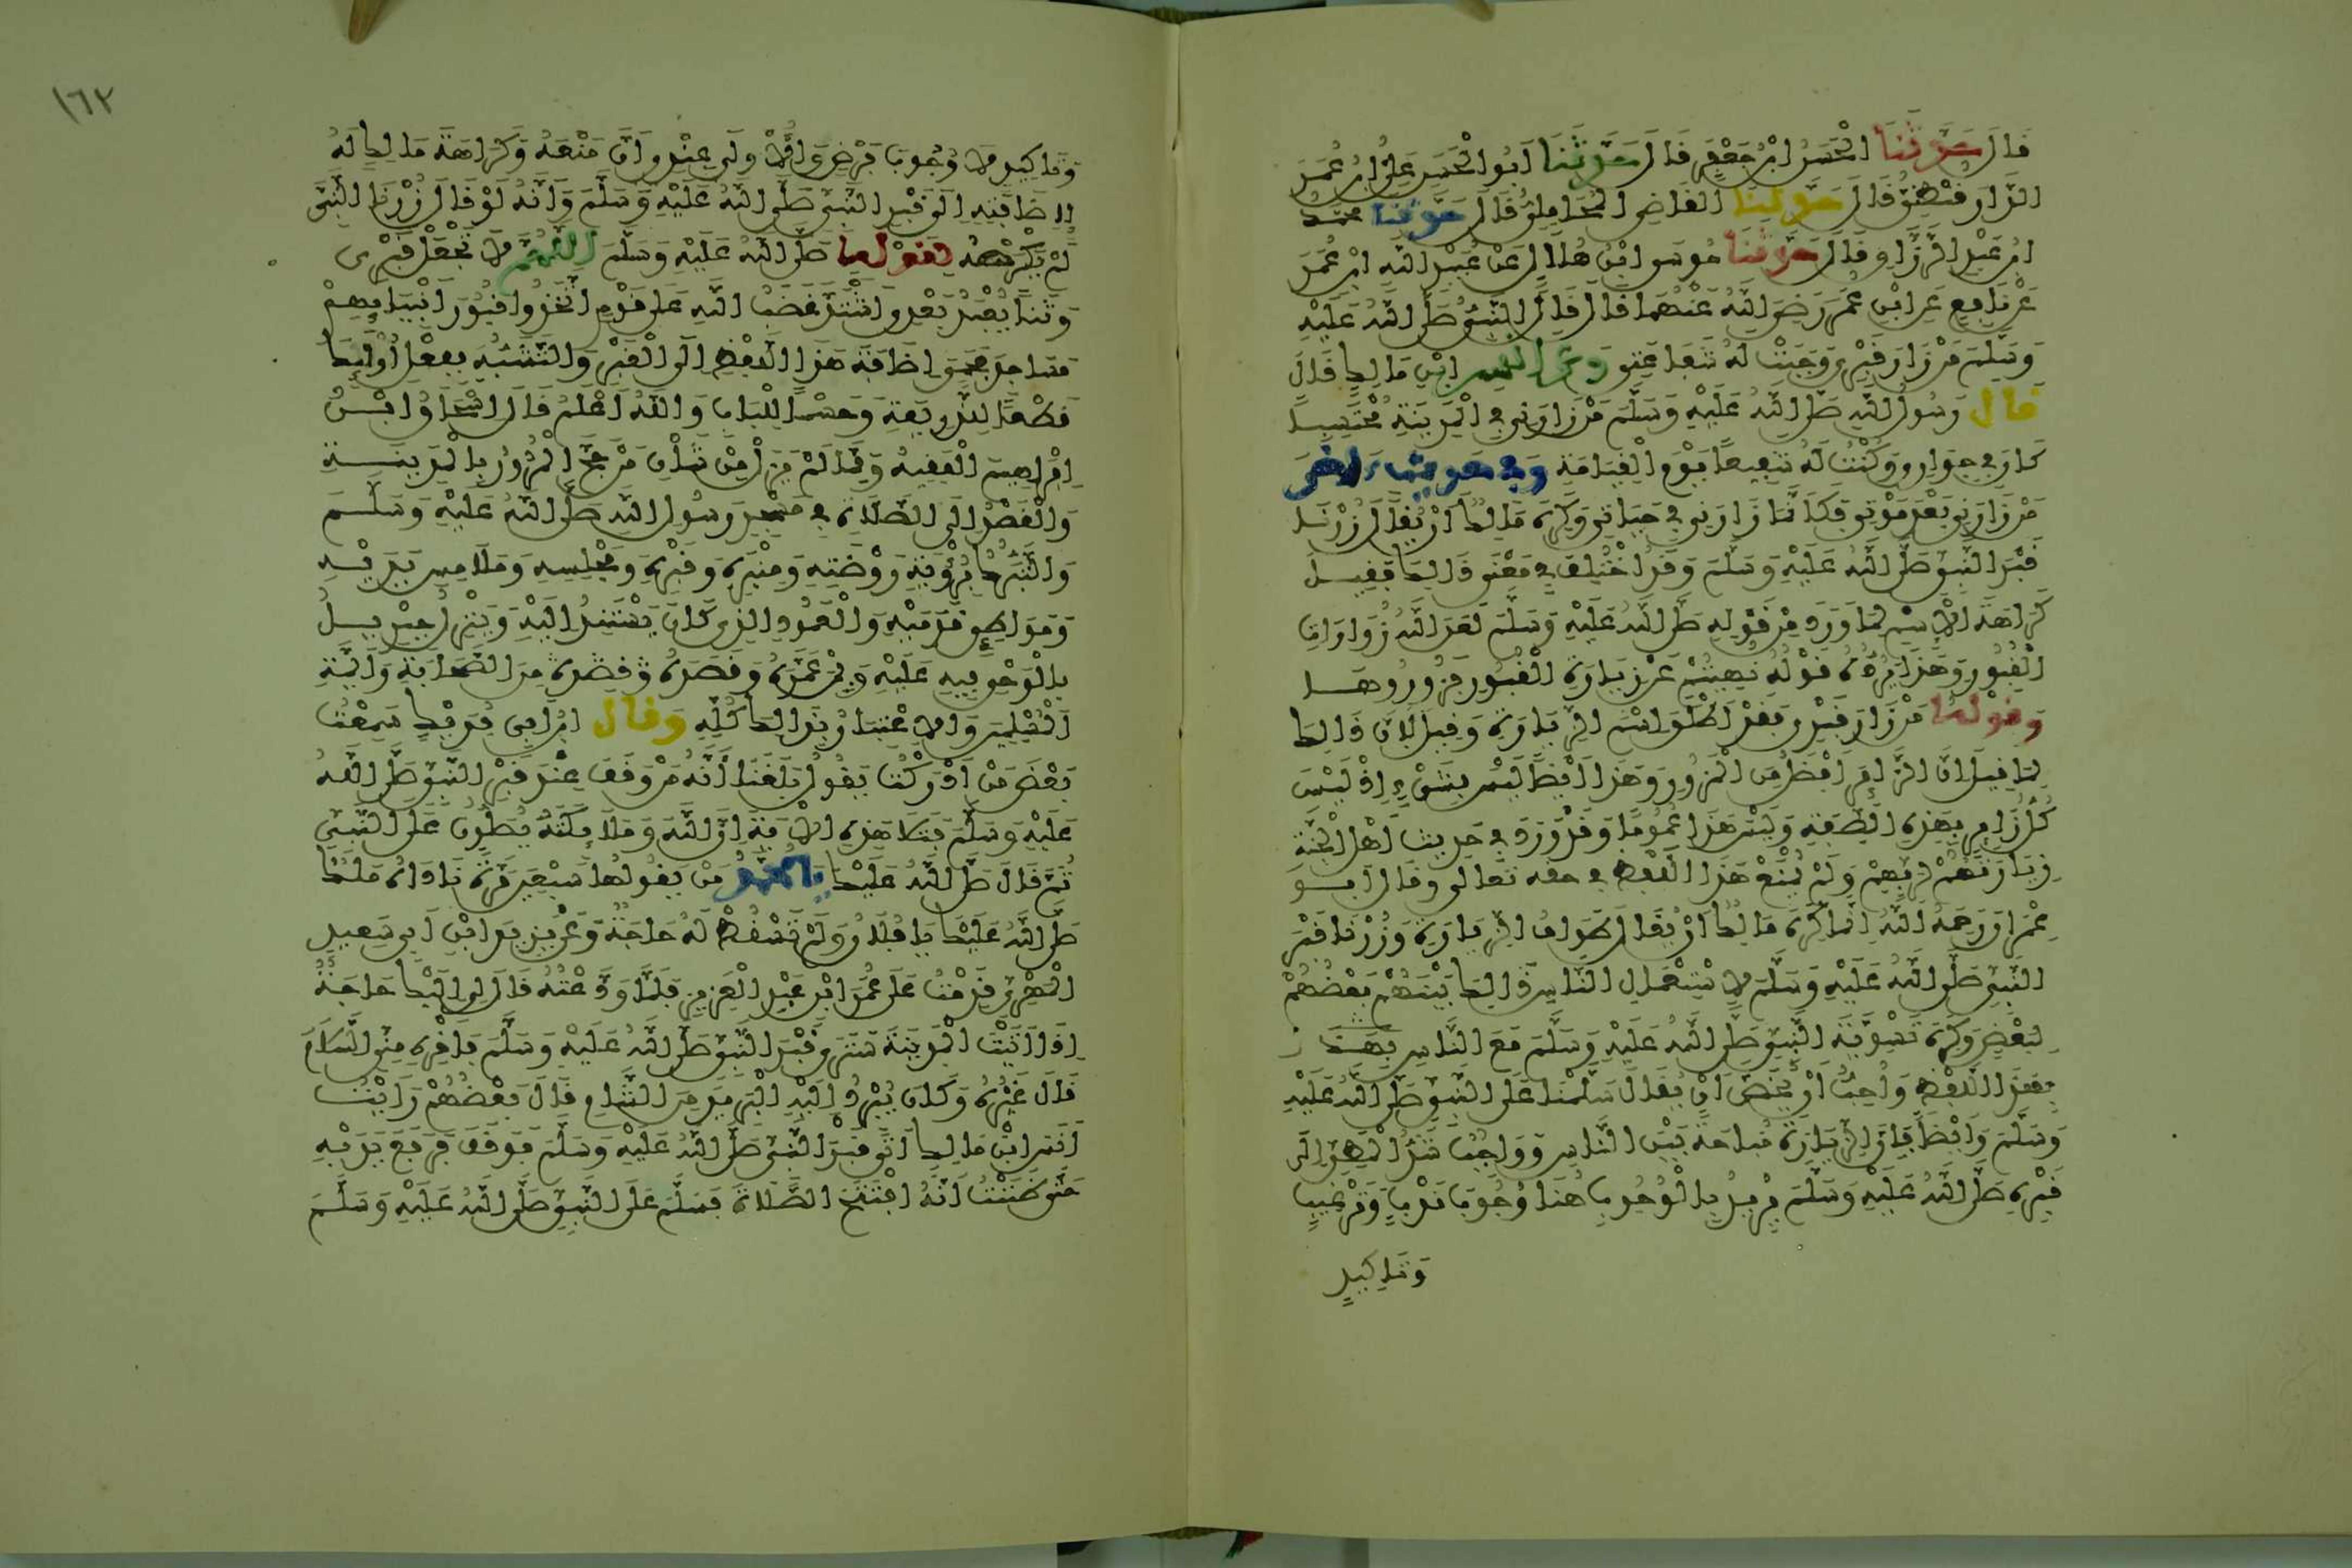 قَالَ حَدَّثَنَا الْحَسَنُ ابْنُ جَعْفَرٍ قَالَ حَدَّثَنَا أَبُو الْحَسَنِ عَلِيُّ ابْنُ عُمَرَ
الدَّارَقُطْنِيُّ قَالَ حَدَّثَنَا الْقَاضِي الْمَحَامِلِيُّ قَالَ حَدَّثَنَا مُحَمَّدُ
ابْنُ عَبْدِ الرَّزَّاقِ قَالَ حَدَّثَنَا مُوسَى ابْنُ هِلَالٍ عَنْ عُبَيْدِ اللَّهِ ابْنِ عُمَرَ
عَنْ نَافِعٍ عَنِ ابْنِ عُمَرَ رَضِيَ اللَّهُ عَنْهُمَا قَالَ قَالَ النَّبِيُّ صَلَّى اللَّهُ عَلَيْهِ
وَسَلَّمَ مَنْ زَارَ قَبْرِي وَجَبَتْ لَهُ شَفَاعَتِي وَعَنْ أَنَسِ ابْنِ مَالِكٍ قَالَ
قَالَ رَسُولُ اللَّهِ صَلَّى اللَّهُ عَلَيْهِ وَسَلَّمَ مَنْ زَارَنِي فِي الْمَدِينَةِ مُحْتَسِبًا
كَانَ فِي جِوَارِي وَكُنْتُ لَهُ شَفِيعًا يَوْمَ الْقِيَامَةِ وَفِي حَدِيثٍ آخَرَ
مَنْ زَارَنِي بَعْدَ مَوْتِي فَكَأَنَّمَا زَارَنِي فِي حَيَاتِي وَكَرِهَ مَالِكٌ أَنْ يُقَالَ زُرْنَا
قَبْرَ النَّبِيِّ صَلَّى اللَّهُ عَلَيْهِ وَسَلَّمَ وَقَدِ اخْتُلِفَ فِي مَعْنَى ذَالِكَ فَقِيلَ
كَرَاهَةَ الِاسْمِ لِمَا وَرَدَ مِنْ قَوْلِهِ صَلَّى اللَّهُ عَلَيْهِ وَسَلَّمَ لَعَنَ اللَّهُ زَوَّارَاتِ
الْقُبُورِ وَهَذَا يَرُدُّهُ قَوْلُهُ نُهِيتُمْ عَنْ زِيَارَةِ الْقُبُورِ فَزُورُوهَا
وَقَوْلُهُ مَنْ زَارَ قَبْرِي فَقَدْ أَطْلَقَ اسْمَ الزِّيَارَةِ وَقِيلَ لِأَنَّ ذَالِكَ
لِمَا قِيلَ إِنَّ الزَّائِرَ أَفْضَلُ مِنَ الْمَزُورِ وَهَذَا أَيْضًا لَيْسَ بِشَيْءٍ إِذْ لَيْسَ
كُلُّ زَائِرٍ بِهَذِهِ الصِّفَةِ وَلَيْسَ هَذَا عُمُومًا وَقَدْ وَرَدَ فِي حَدِيثِ أَهْلِ الْجَنَّةِ
زِيَارَتُهُمْ لِرَبِّهِمْ وَلَمْ يُمْنَعْ هَذَا اللَّفْظُ فِي حقه تَعَالَى وَقَالَ أَبُو
عِمْرَانَ رَحِمَهُ اللَّهُ إِنَّمَا كَرِهَ مَالِكٌ أَنْ يُقَالَ طَوَافُ الزِّيَارَةِ وَزُرْنَا قَبْرَ
النَّبِيِّ صَلَّى اللَّهُ عَلَيْهِ وَسَلَّمَ لِاسْتِعْمَالِ النَّاسِ ذَالِكَ بَيْنَهُمْ بَعْضُهُمْ
لِبَعْضٍ وَكَرِهَ تَسْوِيَةَ النَّبِيِّ صَلَّى اللَّهُ عَلَيْهِ وَسَلَّمَ مَعَ النَّاسِ بِهَذَا
بِهَذَا اللَّفْظِ وَأُحِبُّ أَنْ يُخَصَّ أَنْ يُقَالَ سَلَّمْنَا عَلَى النَّبِيِّ صَلَّى اللَّهُ عَلَيْهِ
وَسَلَّمَ وَأَيْضًا فَإِنَّ الزِّيَارَةَ مُبَاحَةٌ بَيْنَ النَّاسِ وَوَاجِبٌ شَدُّ الْمَطِيِّ إِلَى
قَبْرِهِ صَلَّى اللَّهُ عَلَيْهِ وَسَلَّمَ يُرِيدُ بِالْوُجُوبِ هُنَا وُجُوبَ نَدْبٍ وَتَرْغِيبٍ
وَتَأْكِيدٍ
١٦٢
وَتَأْكِيدٍ لَا وُجُوبَ فَرْضٍ وَالْأَوْلَى عِنْدِي أَنَّ مَنْعَهُ وَكَرَاهَةَ مَالِكٍ لَهُ
لِإِضَافَتِهِ إِلَى قَبْرِ النَّبِيِّ صَلَّى اللَّهُ عَلَيْهِ وَسَلَّمَ وَأَنَّهُ لَوْ قَالَ زُرْنَا النَّبِيَّ
لَمْ يَكْرَهْهُ لِقَوْلِهِ صَلَّى اللَّهُ عَلَيْهِ وَسَلَّمَ اللَّهُمَّ لَا تَجْعَلْ قَبْرِي
وَثَنًا يُعْبَدُ بَعْدِي اشْتَدَّ غَضَبُ اللَّهِ عَلَى قَوْمٍ اتَّخَذُوا قُبُورَ أَنْبِيَائِهِمْ
مَسَاجِدَ فَحَمَى إِضَافَةَ هَذَا اللَّفْظِ إِلَى الْقَبْرِ وَالتَّشَبُّهَ بِفِعْلِ أُولَئِكَ
قَطْعًا لِلذَّرِيعَةِ وَحَسْمًا لِلْبَابِ وَاللَّهُ أَعْلَمُ قَالَ إِسْحَاقُ ابْنُ
إِبْرَاهِيمَ الْفَقِيهُ وَمِمَّا لَمْ يَزَلْ مِنْ شَأْنِ مَنْ حَجَّ الْمُرُورُ بِالْمَدِينَةِ
وَالْقَصْدُ إِلَى الصَّلَاةِ فِي مَسْجِدِ رَسُولِ اللَّهِ صَلَّى اللَّهُ عَلَيْهِ وَسَلَّمَ
وَالتَّبَرُّكُ بِرُؤْيَةِ رَوْضَتِهِ وَمِنْبَرِهِ وَقَبْرِهِ وَمَجْلِسِهِ وَمَلَامِسِ يَدَيْهِ
وَمَوَاطِئِ قَدَمَيْهِ وَالْعَمُودِ الَّذِي كَانَ يَسْتَنِدُ إِلَيْهِ وَيَنْزِلُ جِبْرِيلُ
بِالْوَحْيِ فِيهِ عَلَيْهِ وَبِمَنْ عَمَّرَهُ وَقَصَدَهُ مِنَ الصَّحَابَةِ وَأَئِمَّةِ
الْمُسْلِمِينَ وَالِاعْتِبَارُ بِذَالِكَ كُلِّهِ وَقَالَ ابْنُ أَبِي فُدَيْكٍ سَمِعْتُ
بَعْضَ مَنْ أَدْرَكْتُ يَقُولُ بَلَغَنَا أَنَّهُ مَنْ وَقَفَ عِنْدَ قَبْرِ النَّبِيِّ صَلَّى اللَّهُ
عَلَيْهِ وَسَلَّمَ فَتَلَا هَذِهِ الْآيَةَ إِنَّ اللَّهَ وَمَلَائِكَتَهُ يُصَلُّونَ عَلَى النَّبِيِّ
ثُمَّ قَالَ صَلَّى اللَّهُ عَلَيْكَ يَا مُحَمَّدُ مَنْ يَقُولُهَا سَبْعِينَ مَرَّةً نَادَاهُ مَلَكٌ
صَلَّى اللَّهُ عَلَيْكَ يَا فُلَانُ وَلَمْ تَسْقُطْ لَهُ حَاجَةٌ وَعَنْ يَزِيدَ ابْنِ أَبِي سَعِيدٍ
الْمَهْرِيِّ قَدِمْتُ عَلَى عُمَرَ ابْنِ عَبْدِ الْعَزِيزِ فَلَمَّا وَدَّعْتُهُ قَالَ لِي إِلَيْكَ حَاجَةٌ
إِذَا أَتَيْتَ الْمَدِينَةَ سَتَرَى قَبْرَ النَّبِيِّ صَلَّى اللَّهُ عَلَيْهِ وَسَلَّمَ فَاقْرِهِ مِنِّي السَّلَامَ
قَالَ غَيْرُهُ وَكَانَ يُبْرِدُ إِلَيْهِ الْبَرِيدَ مِنَ الشَّامِ قَالَ بَعْضُهُمْ رَأَيْتُ
أَنَسَ ابْنَ مَالِكٍ أَتَى قَبْرَ النَّبِيِّ صَلَّى اللَّهُ عَلَيْهِ وَسَلَّمَ فَوَقَفَ فَرَفَعَ يَدَيْهِ
حَتَّى ظَنَنْتُ أَنَّهُ افْتَتَحَ الصَّلَاةَ فَسَلَّمَ عَلَى النَّبِيِّ صَلَّى اللَّهُ عَلَيْهِ وَسَلَّمَ